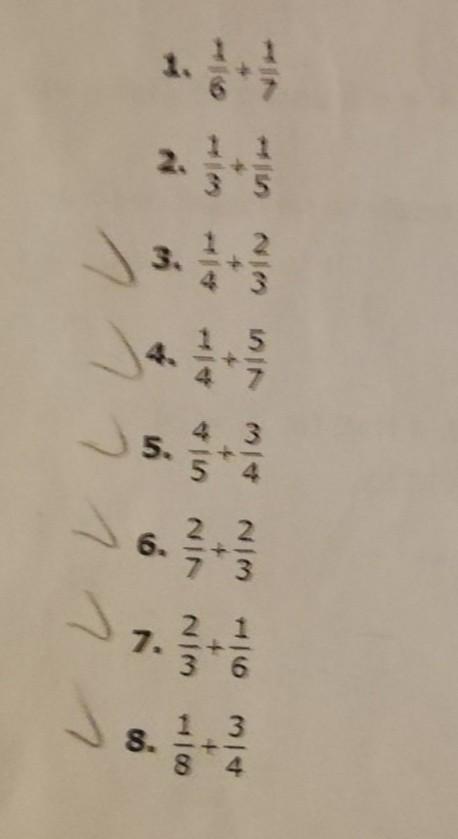 1. 1/6 + 1/7
2. 1/3 + 1/5
3. 1/4 + 2/3
4. 1/4 + 5/7
5. 4/5 + 3/4
6. 2/7 + 2/3
7. 2/3 + 1/6
8. 1/8 + 3/4